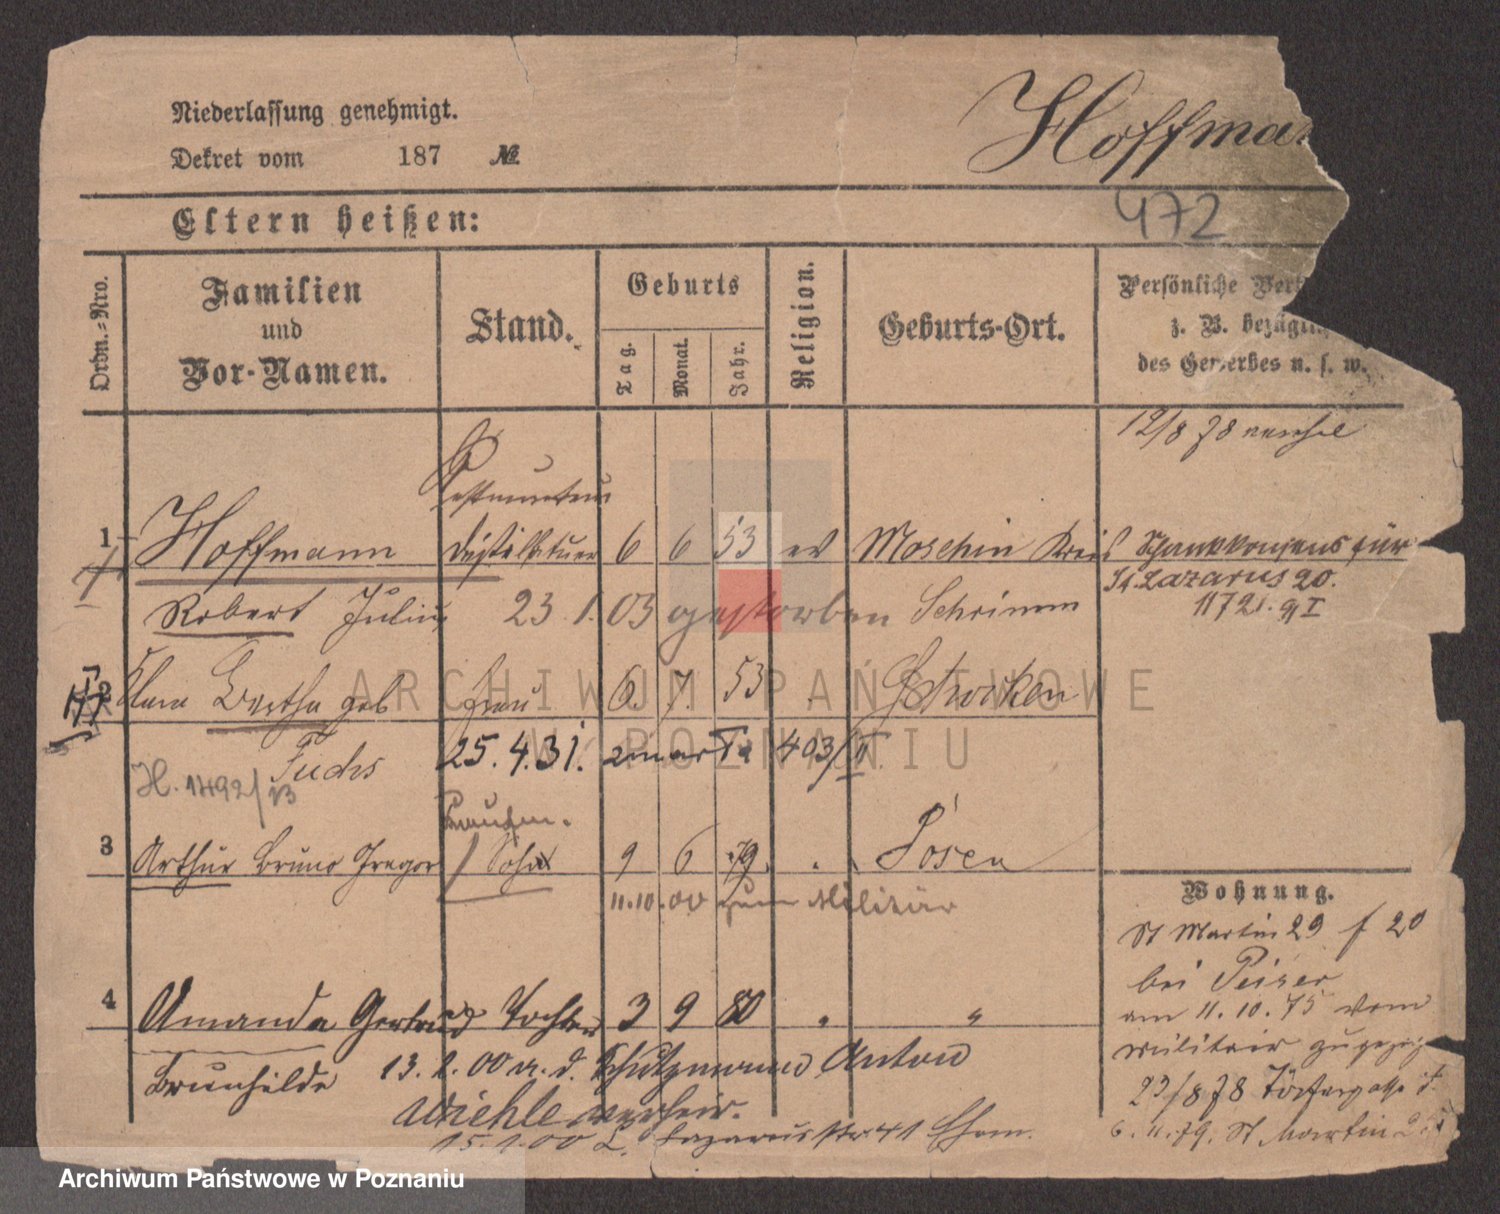 Niederlassung genehmigt.
Dekret vom 187 №
Hoffman
472
Eltern heißen:
Ordn.-Nro.
Familien und Vor-Namen.
Stand.
Geburts
Tag.
Monat.
Jahr.
Religion.
Geburts-Ort.
Persönliche
z. B. bezügli
des Gewerbes u. s. w.
12/8 78
1 Hoffmann Destillateur 6 6 53 ev Moschin Kreis Schankkonsens für
St. Lazarus 20.
Robert Julius 23.1.03 gestorben Schrimm
2 Clara Bertha geb Frau 6. 7. 53
Fuchs 25.4.31.
H. 1492/
3 Arthur Bruno Gregor Sohn 9 6 79 Posen
11.10.00 zum Militär
Wohnung.
St Martin 29 f 20
bei Peiser
am 11.10.75 vom
Militair
4 Amanda Gertrud Tochter 3 9 80 " "
Brunhilde 13.1.00 m. d. Schutzmann Anton
Wiehle verheir.
23/8 78
6.11.79. St Martin
15.1.00 Lazarusstr. 41 Ehem.
ARCHIWUM PAŃSTWOWE
W POZNANIU
Archiwum Państwowe w Poznaniu